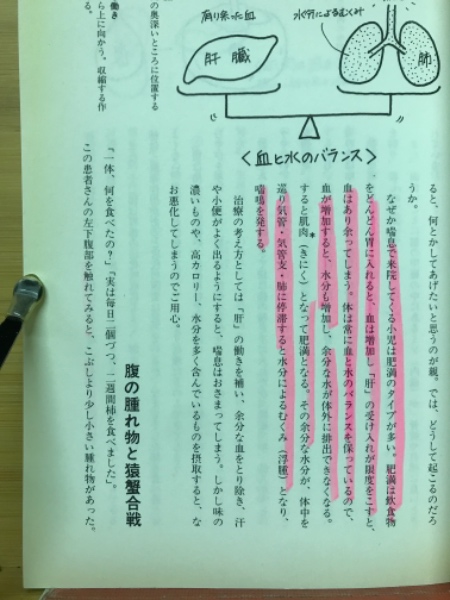 有り余った血
水分によるむくみ
肝臓
肺
〈血と水のバランス〉
の奥深いところに位置する
働き
ら上に向かう。収縮する作
る。
ると、何とかしてあげたいと思うのが親。では、どうして起こるのだろ
うか。
なぜか喘息で来院してくる小児は肥満のタイプが多い。肥満は飲食物
をどんどん胃に入れると、血は増加し「肝」の受け入れが限度をこすと、
血はあり余ってしまう。体は常に血と水のバランスを保っているので、
血が増加すると、水分も増加し、余分な水が体外に排出できなくなる。
すると肌肉*（きにく）となって肥満となる。その余分な水分が、体中を
巡り気管・気管支・肺に停滞すると水分によるむくみ（浮腫）となり、
喘鳴を発する。
治療の考え方としては「肝」の働きを補い、余分な血をとり除き、汗
や小便がよく出るようにすると、喘息はおさまってしまう。しかし味の
濃いものや、高カロリー、水分を多く含んでいるものを摂取すると、な
お悪化してしまうのでご用心。
腹の腫れ物と猿蟹合戦
「一体、何を食べたの？」「実は毎日二個づつ、二週間柿を食べました」。
この患者さんの左下腹部を触れてみると、こぶしより少し小さい腫れ物があった。